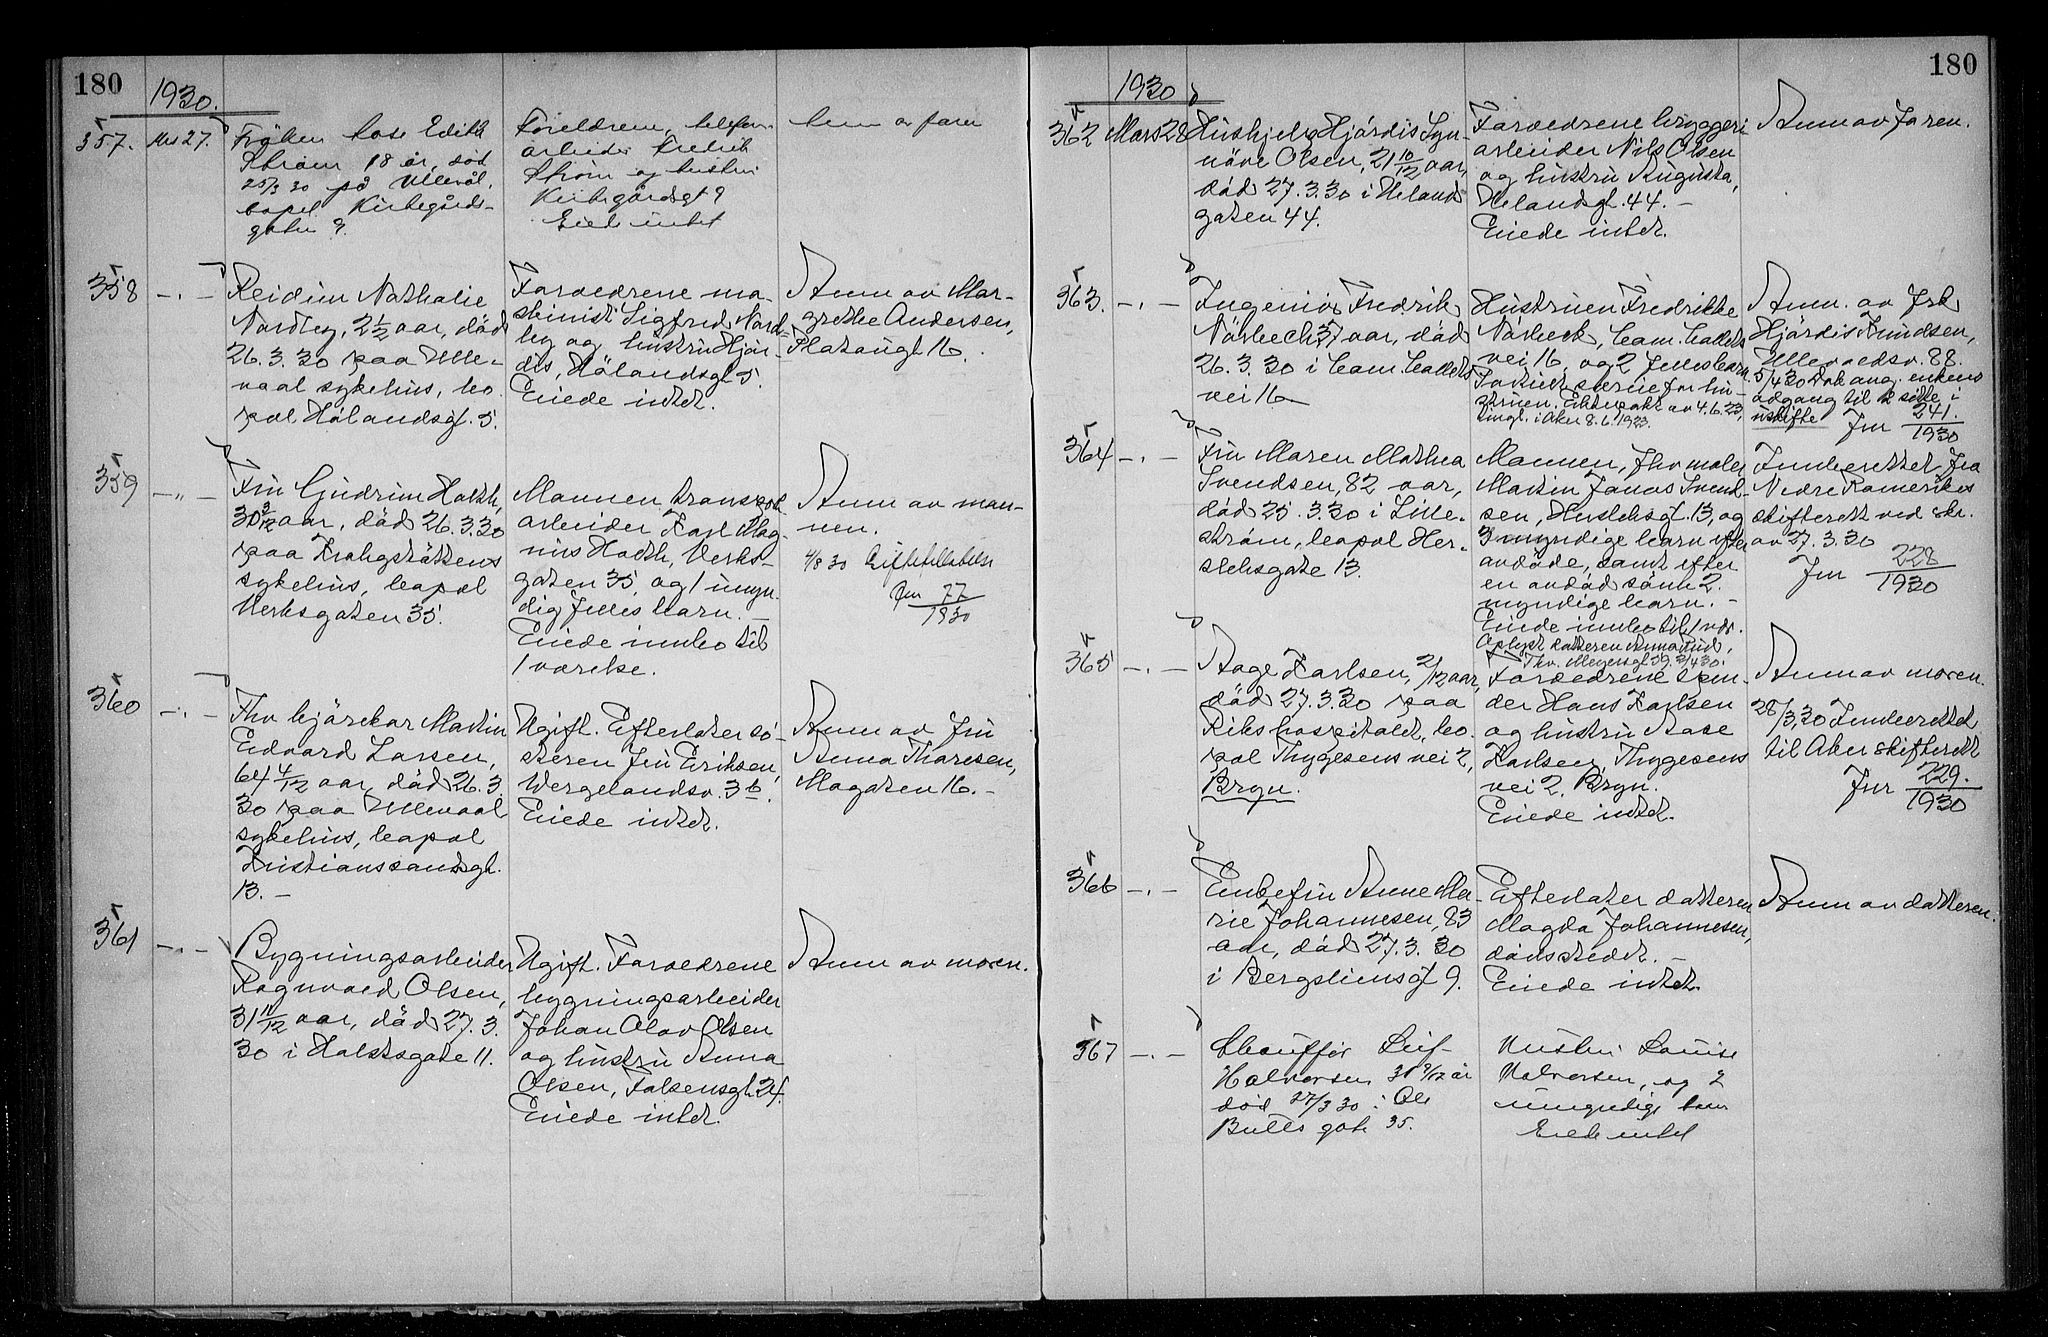 180
1930.
357. Mrs 27.
Frøken Rose Edith
Strøm 18 år, død
25/3 30 på Ullevål,
bopel Kirkegårds-
gaten 9.
Foreldrene, telefon-
arbeider Fredrik
Strøm og hustru
Kirkegårdsgt 9
Eiet intet
Anm av faren
358 -.-
Reidun Nathalie
Nordley, 2 1/2 aar, död
26.3.30 paa Ulle-
vaal sykehus, bo-
pæl Hölandsgt. 5.
Forældrene ma-
skinist Sigfred Nord-
ley og hustru Hjör-
dis, Hölandsgt 5.
Eiede intet.
Anm av Mar-
grethe Andersen,
Platousgt 16.
359 -"-
Fru Gudrun Holth,
30 3/12 aar, död 26.3.30
paa Krohgstöttens
sykehus, bopæl
Verksgaten 35.
Mannen transport-
arbeider Karl Mag-
nus Holth, Verks-
gaten 35, og 1 umyn-
dig felles barn. -
Eiede innbo til
1 værelse.
Anm av man-
nen.
4/8 30 Giftetillatelse
Jnr 77/1930
360 -.-
Fhv kjörekar Martin
Edvard Larsen,
64 4/12 aar, död 26.3.
30 paa Ullevaal
sykehus, bopæl
Kristianssandsgt.
13. -
Ugift. Efterlater sö-
steren fru Eriksen,
Wergelandsv. 3 b.
Eiede intet.
Anm av fru
Anna Thoresen,
Mogaten 16. -
361 -.-
Bygningsarbeider
Ragnvald Olsen,
31 11/12 aar, död 27.3.
30 i Holstsgate 11.
Ugift. Forældrene
bygningsarbeider
Johan Olav Olsen
og hustru Anna
Olsen, Falsensgt 24.
Eiede intet.
Anm av moren.
180
1930
362 Mars 28
Hushjelp Hjördis Syn-
növe Olsen, 21 10/12 aar,
död 27.3.30 i Heland
gaten 44.
Forældrene bryggeri
arbeider Nils Olsen
og hustru Augusta,
Helandsgt. 44. -
Eiede intet.
Anm av faren.
363. -.-
Ingeniör Fredrik
Nörbech 37 aar, död
26.3.30 i Cam. Colletts
vei 16
Hustruen Fredrikke
Nörbeck, Cam. Colletts
vei 16, og 2 felles barn.
struen. Ektepakt av 4.6.23,
tingl. i Aker 8.6.1923.
Anm. av frk
Hjördis Knudsen,
Ullevaalsv. 88.
5/4 30 Dok ang. enkens
adgang til å sitte i
uskifte Jnr 241./1930
364 -.-
Fru Maren Mathea
Svendsen, 82 aar,
död 25.3.30 i Lille-
ström, bopæl Her-
slebsgate 13.
Mannen, fhv maler
Martin Jonas Svend-
sen, Herslebsgt. 13, og
3 myndige barn efter
avdöde, samt efter
en avdöd sönn 2
myndige barn. -
Eiede innbo til 1 vær.
Oplyst datteren Anna Rud,
Thv. Meyersgt 59. 2/4 30.
Innberettet fra
Nedre Romerikes
skifterett ved skr.
av 27.3.30
Jnr 228/1930
365 -.-
Aage Karlsen, 2/12 aar,
död 27.3.30 paa
Rikshospitalet, bo-
pæl Thygesens vei 2,
Bryn.
Forældrene spen-
der Hans Karlsen
og hustru Aase
Karlsen, Thygesens
vei 2, Bryn.
Eiede intet.
Anm av moren.
28/3.30 Innberettet
til Aker skifterett
Jnr 229./1930
366 -.-
Enkefru Anne Ma-
rie Johannesen, 83
aar, död 27.3.30
i Bergsliensgt 9.
Efterlater datteren
Magda Johannesen,
dödsstedet. -
Eiede intet.
Anm av datteren.
367 -.-
Chauffør Leif
Halvorsen 31 9/12 år
død 27/3 30 i Ole
Bulls gate 35.
Hustru Louise
Halvorsen, og 2
umyndige barn
Eiet intet